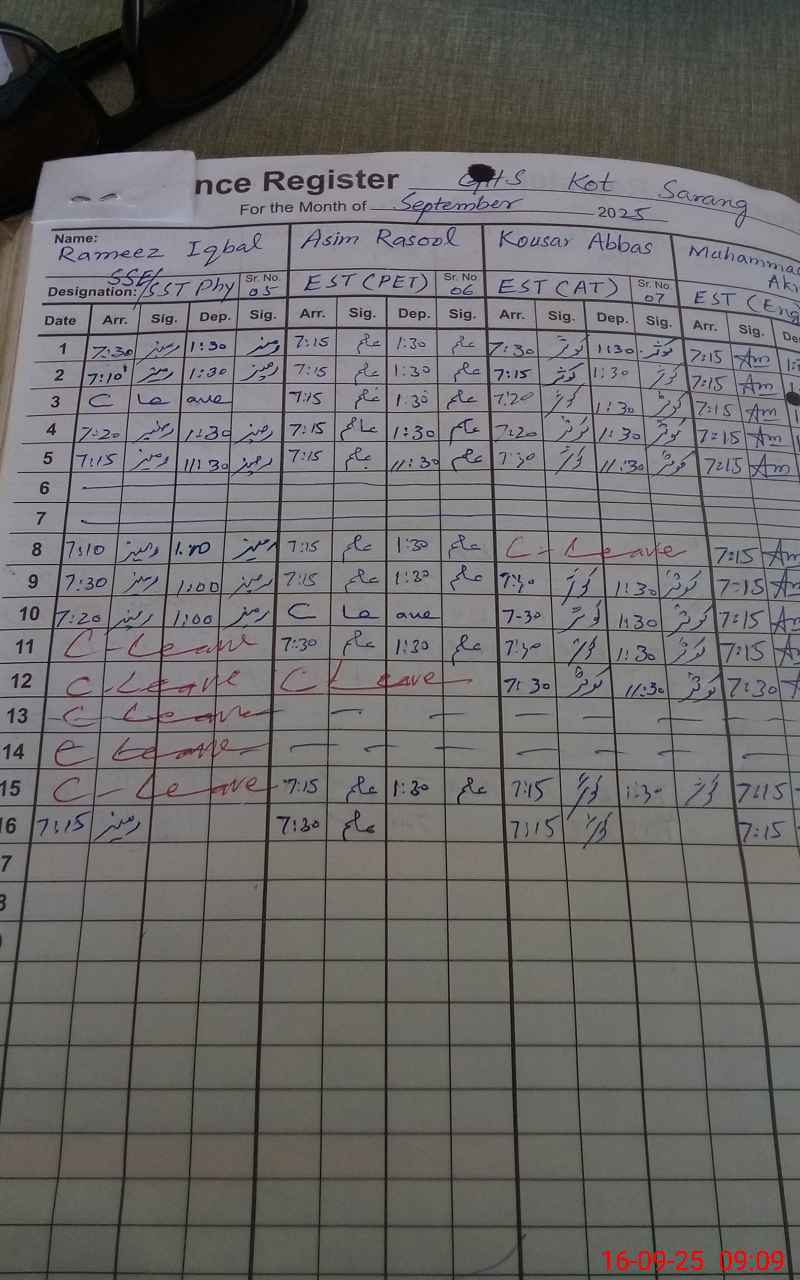 nce Register GHS Kot Sarang
For the Month of September 2025
Name: Rameez Iqbal Asim Rasool Kousar Abbas Muhammad
SSE/
Designation: SST Phy Sr. No. 05 EST (PET) Sr. No. 06 EST (AT) Sr. No. 07 EST (Eng
Date Arr. Sig. Dep. Sig. Arr. Sig. Dep. Sig. Arr. Sig. Dep. Sig. Arr. Sig. De
1 7:30 رمیز 1:30 رمیز 7:15 1:30 7:30 کوثر 1:30 کوثر 7:15 Am
2 7:10 رمیز 1:30 رمیز 7:15 1:30 7:15 کوثر 1:30 کوثر 7:15 Am
3 C Leave 7:15 1:30 7:20 کوثر 1:30 کوثر 7:15 Am
4 7:20 رمیز 1:30 رمیز 7:15 1:30 7:20 کوثر 1:30 کوثر 7:15 Am
5 7:15 رمیز 11:30 رمیز 7:15 11:30 7:30 کوثر 11:30 کوثر 7:15 Am
6
7
8 7:10 رمیز رمیز 7:15 1:30 C-Leave 7:15 Am
9 7:30 رمیز 1:00 رمیز 7:15 1:30 7:30 کوثر 1:30 کوثر 7:15 Am
10 7:20 رمیز 1:00 رمیز C Leave 7-30 کوثر 1:30 کوثر 7:15
11 C-Leave 7:30 1:30 7:30 کوثر 1:30 کوثر 7:15
12 C-Leave C Leave 7:30 کوثر 11:30 کوثر 7:30
13 C-Leave — — — — — — — —
14 C Leave — — — — — — — — —
15 C-Leave 7:15 1:30 7:15 کوثر 1:30 کوثر 7:15
16 7:15 رمیز 7:30 7:15 کوثر 7:15
7
8
16-09-25 09:09